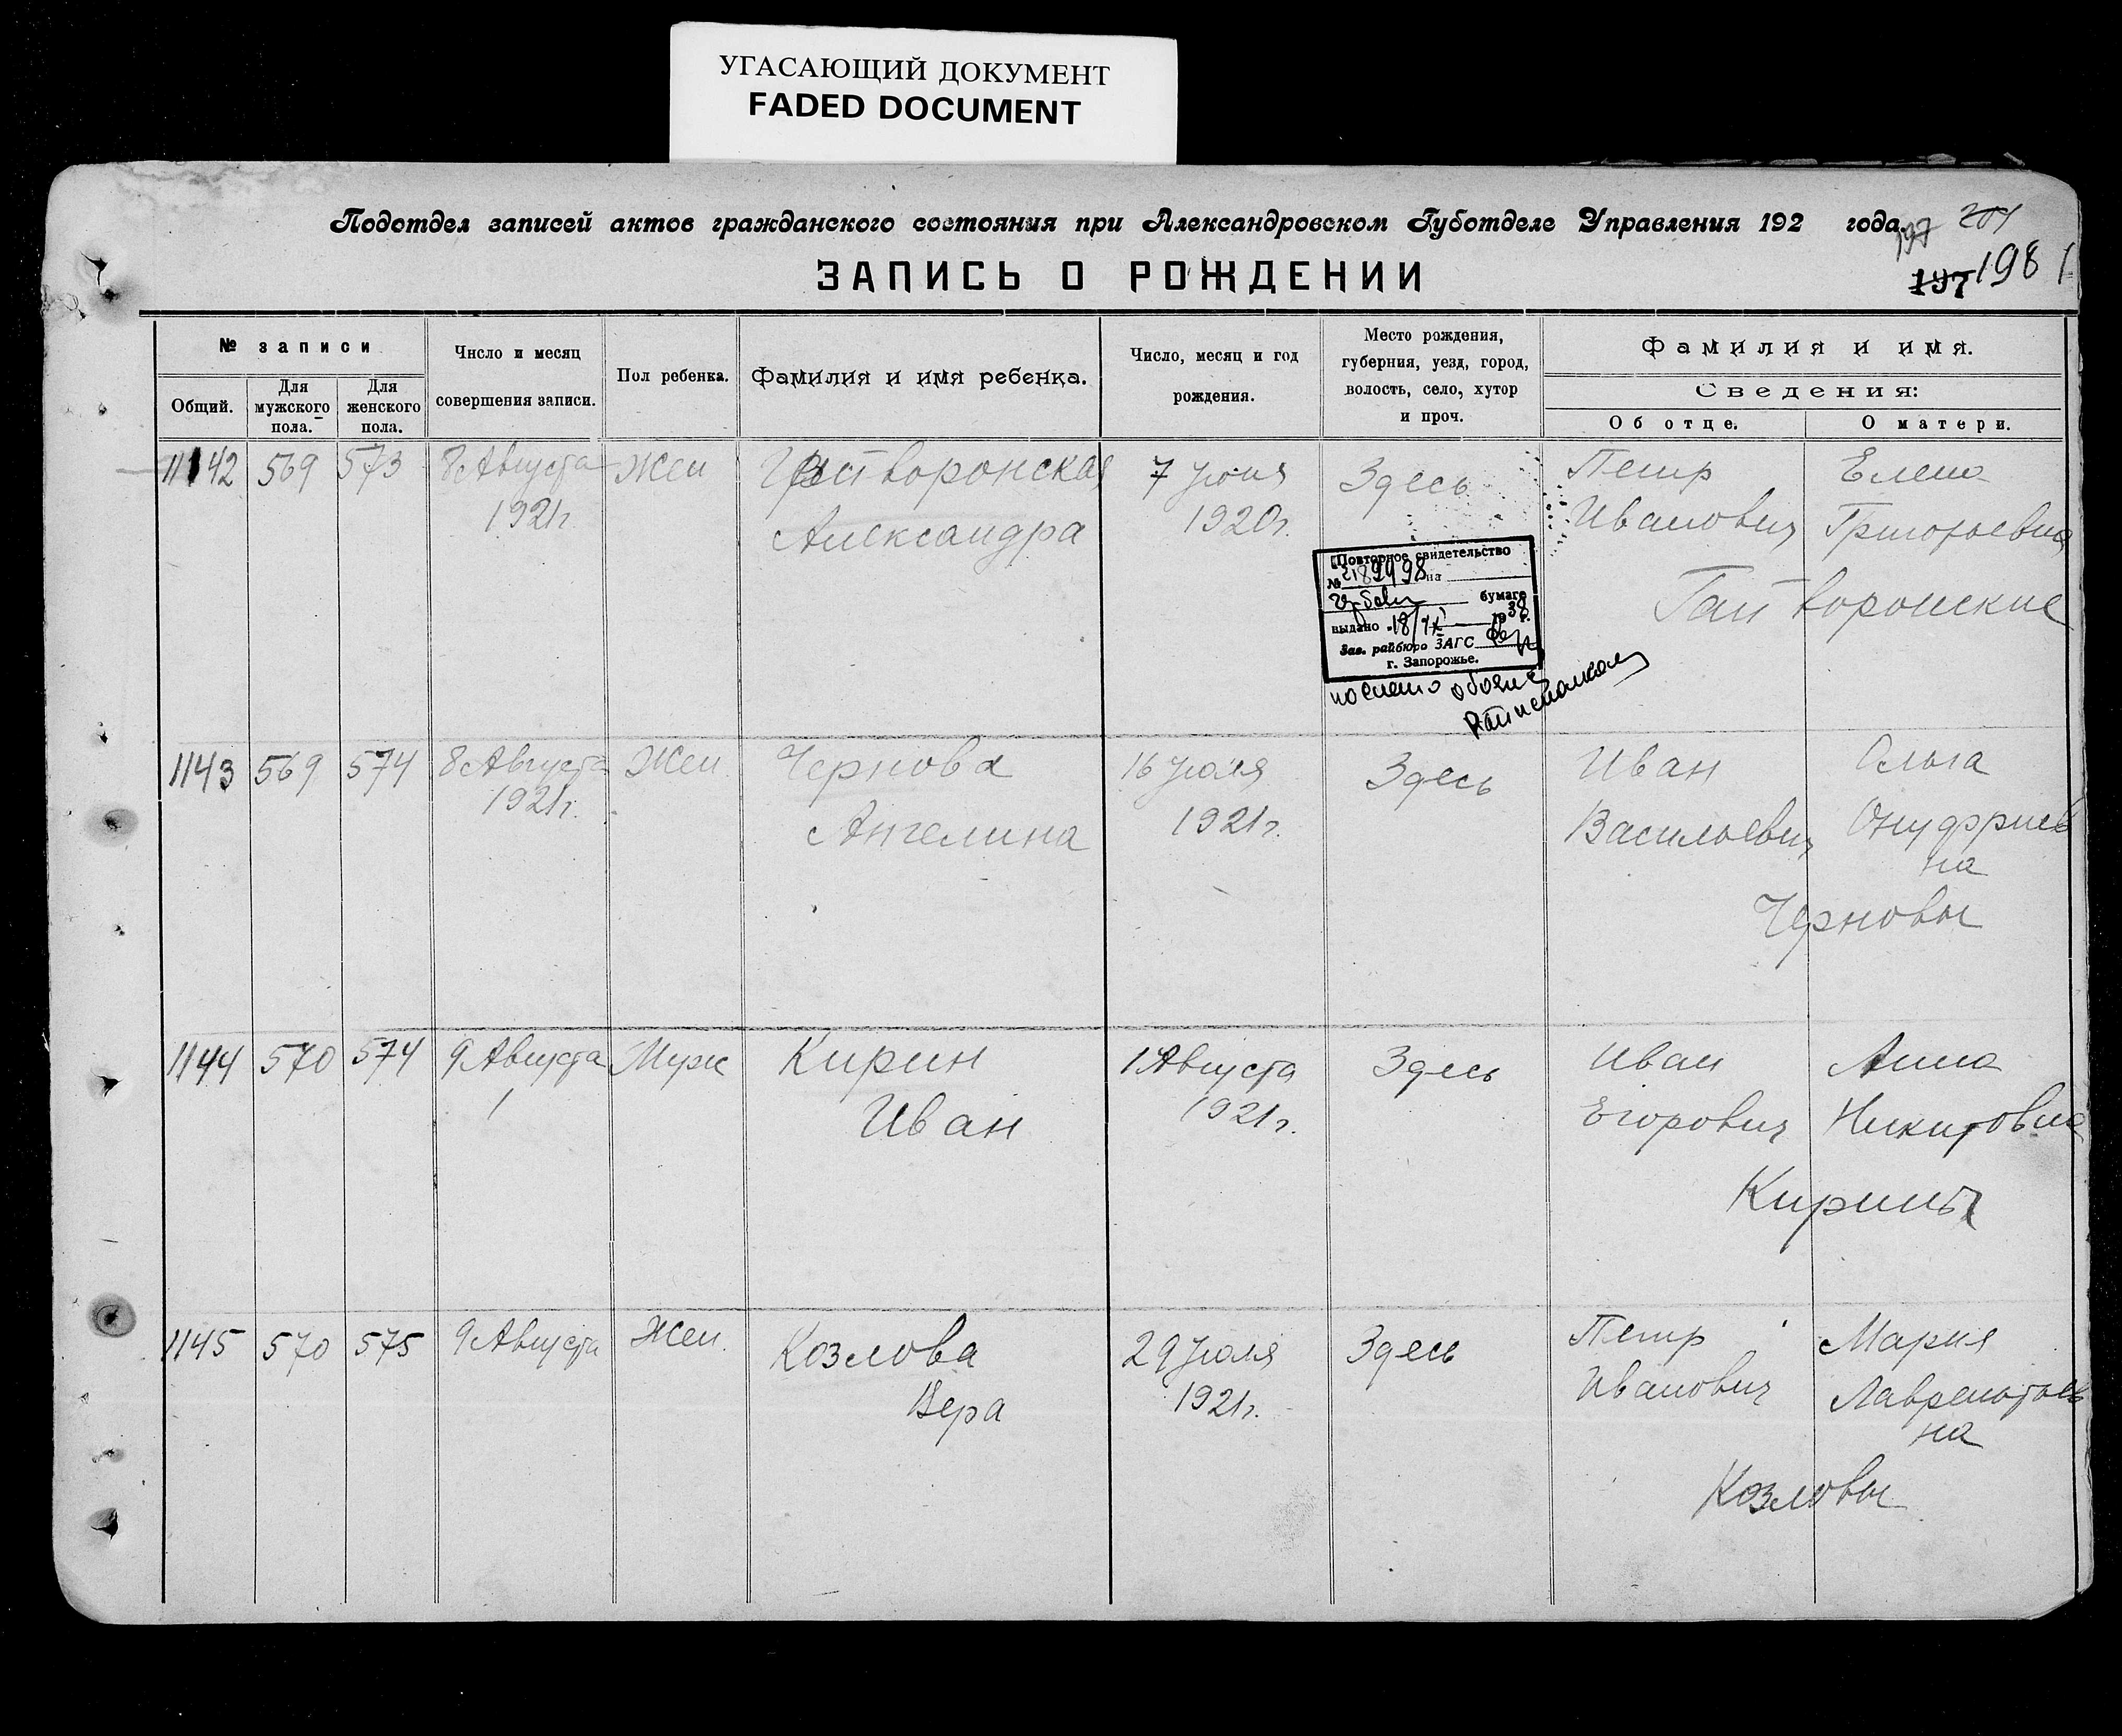 УГАСАЮЩИЙ ДОКУМЕНТ
FADED DOCUMENT
Подотдел записей актов гражданского состояния при Александровском Губотделе Управления 192 года.
197 201
ЗАПИСЬ О РОЖДЕНИИ
197 198
№ записи
Общий.
Для мужского пола.
Для женского пола.
Число и месяц
совершения записи.
Пол ребенка.
Фамилия и имя ребенка.
Число, месяц и год
рождения.
Место рождения,
губерния, уезд, город,
волость, село, хутор
и проч.
Фамилия и имя.
Сведения:
Об отце.
О матери.
1142 569 573 8 Августа Жен Гайворонская 7 Июня Здесь Петр Елена
1921 г Александра 1920 г. Иванович Григорьевна
Гайворонские
Повторное свидетельство
№ 2189498 на
бумаге
выдано 18/IX 1938 г.
Зав. райбюро ЗАГС
г. Запорожье.
1143 569 574 8 Августа Жен Чернова 16 Июля Здесь Иван Ольга
1921 г. Ангелина 1921 г. Васильевич Онуфриев
на
Черновы
1144 570 574 9 Августа Муж Кирин 1 Августа Здесь Иван Анна
Иван 1921 г. Егорович Никитовна
Кирины
1145 570 575 9 Августа Жен. Козлова 29 Июля Здесь Петр Мария
Вера 1921 г. Иванович Лаврентьев
на
Козловы